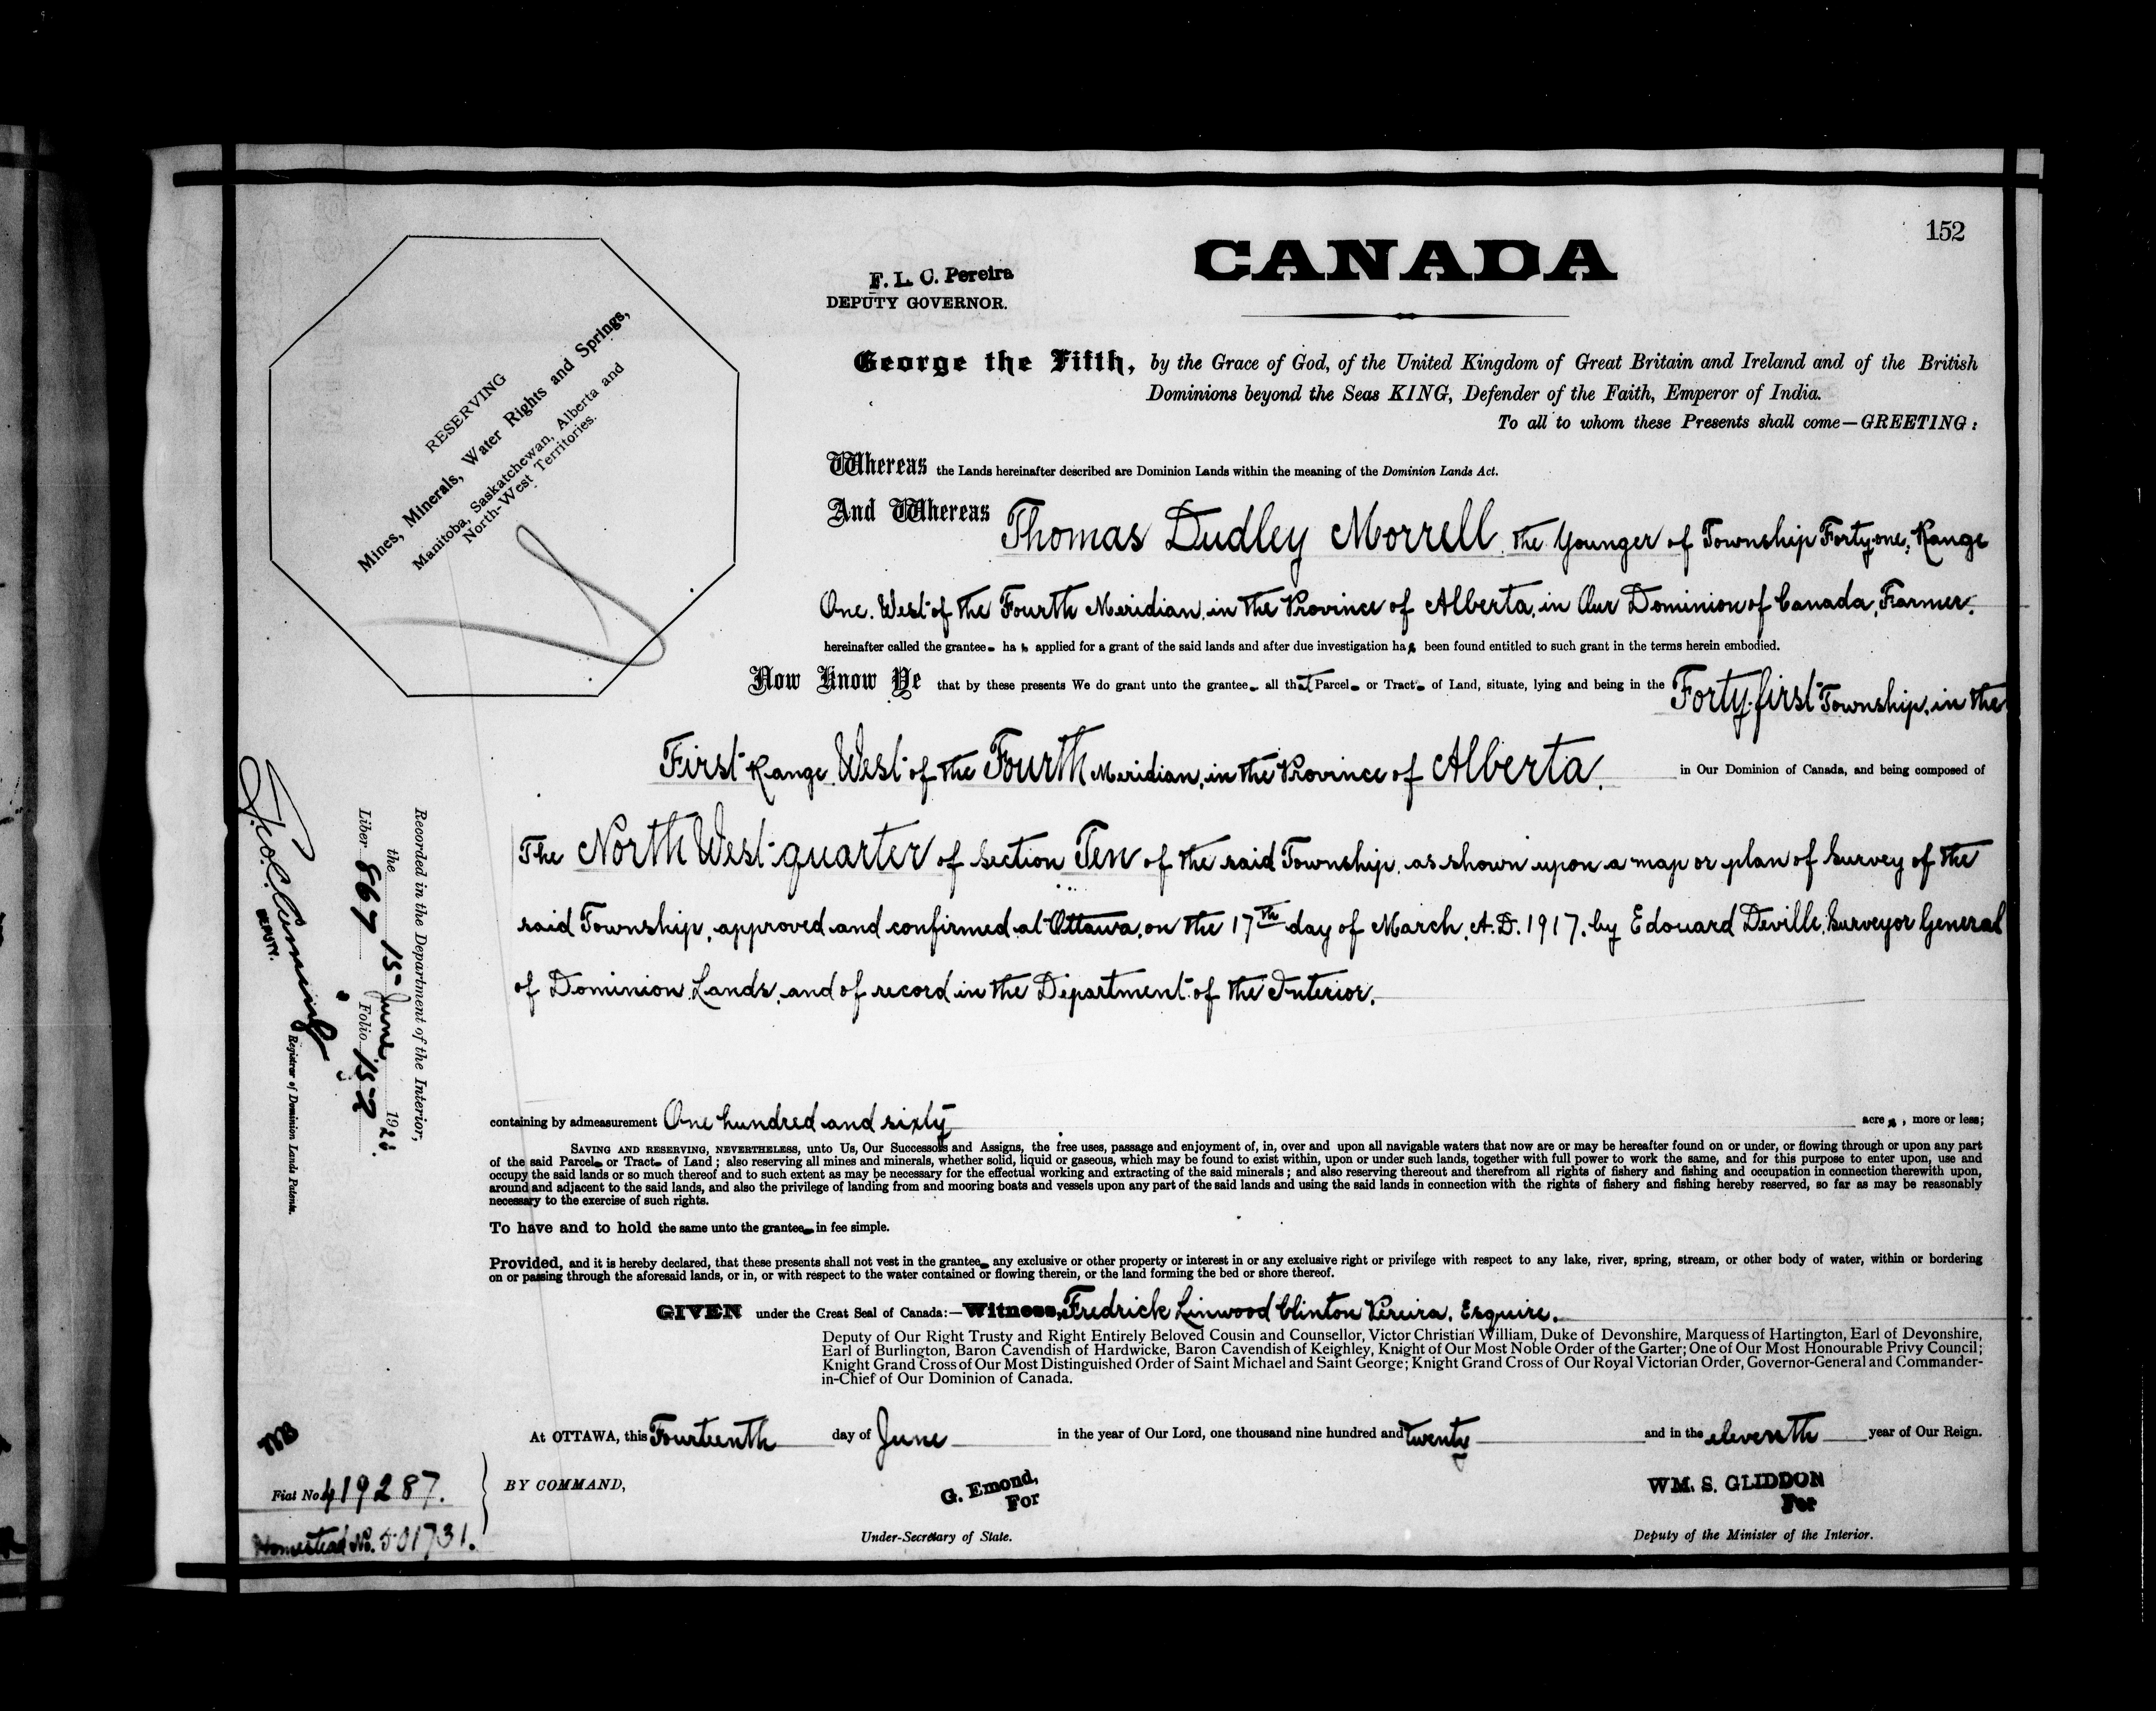 152
CANADA
F. L. C. Pereira
DEPUTY GOVERNOR.
RESERVING
Mines, Minerals, Water Rights and Springs,
Manitoba, Saskatchewan, Alberta and
North-West Territories.
George the Fifth, by the Grace of God, of the United Kingdom of Great Britain and Ireland and of the British
Dominions beyond the Seas KING, Defender of the Faith, Emperor of India.
To all to whom these Presents shall come—GREETING:
Whereas the Lands hereinafter described are Dominion Lands within the meaning of the Dominion Lands Act.
And Whereas Thomas Dudley Morrell, the Younger of Township Forty-one, Range
One, West of the Fourth Meridian, in the Province of Alberta, in Our Dominion of Canada, Farmer,
hereinafter called the grantee ha s applied for a grant of the said lands and after due investigation has been found entitled to such grant in the terms herein embodied.
Now Know Ye that by these presents We do grant unto the grantee all that Parcel or Tract of Land, situate, lying and being in the Forty-first Township, in the
First Range West of the Fourth Meridian, in the Province of Alberta, in Our Dominion of Canada, and being composed of
The North West quarter of Section Ten of the said Township, as shown upon a map or plan of Survey of the
said Township, approved and confirmed at Ottawa, on the 17th day of March, A.D. 1917, by Edouard Deville, Surveyor General
of Dominion Lands, and of record in the Department of the Interior,
containing by admeasurement One hundred and sixty acres, more or less;
SAVING AND RESERVING, NEVERTHELESS, unto Us, Our Successors and Assigns, the free uses, passage and enjoyment of, in, over and upon all navigable waters that now are or may be hereafter found on or under, or flowing through or upon any part
of the said Parcel or Tract of Land; also reserving all mines and minerals, whether solid, liquid or gaseous, which may be found to exist within, upon or under such lands, together with full power to work the same, and for this purpose to enter upon, use and
occupy the said lands or so much thereof and to such extent as may be necessary for the effectual working and extracting of the said minerals; and also reserving thereout and therefrom all rights of fishery and fishing and occupation in connection therewith upon,
around and adjacent to the said lands, and also the privilege of landing from and mooring boats and vessels upon any part of the said lands and using the said lands in connection with the rights of fishery and fishing hereby reserved, so far as may be reasonably
necessary to the exercise of such rights.
To have and to hold the same unto the grantee in fee simple.
Provided, and it is hereby declared, that these presents shall not vest in the grantee any exclusive or other property or interest in or any exclusive right or privilege with respect to any lake, river, spring, stream, or other body of water, within or bordering
on or passing through the aforesaid lands, or in, or with respect to the water contained or flowing therein, or the land forming the bed or shore thereof.
GIVEN under the Great Seal of Canada:—Witness, Fredrick Linwood Clinton Pereira, Esquire,
Deputy of Our Right Trusty and Right Entirely Beloved Cousin and Counsellor, Victor Christian William, Duke of Devonshire, Marquess of Hartington, Earl of Devonshire,
Earl of Burlington, Baron Cavendish of Hardwicke, Baron Cavendish of Keighley, Knight of Our Most Noble Order of the Garter; One of Our Most Honourable Privy Council;
Knight Grand Cross of Our Most Distinguished Order of Saint Michael and Saint George; Knight Grand Cross of Our Royal Victorian Order, Governor-General and Commander-
in-Chief of Our Dominion of Canada.
At OTTAWA, this Fourteenth day of June in the year of Our Lord, one thousand nine hundred and twenty and in the eleventh year of Our Reign.
BY COMMAND,
G. Emond,
For
Under-Secretary of State.
WM. S. GLIDDON
For
Deputy of the Minister of the Interior.
Recorded in the Department of the Interior,
the 15 June 1920.
Liber 867 Folio 152
DEPUTY.
Registrar of Dominion Lands Patents.
Fiat No. 419287.
Homestead No. 501731.